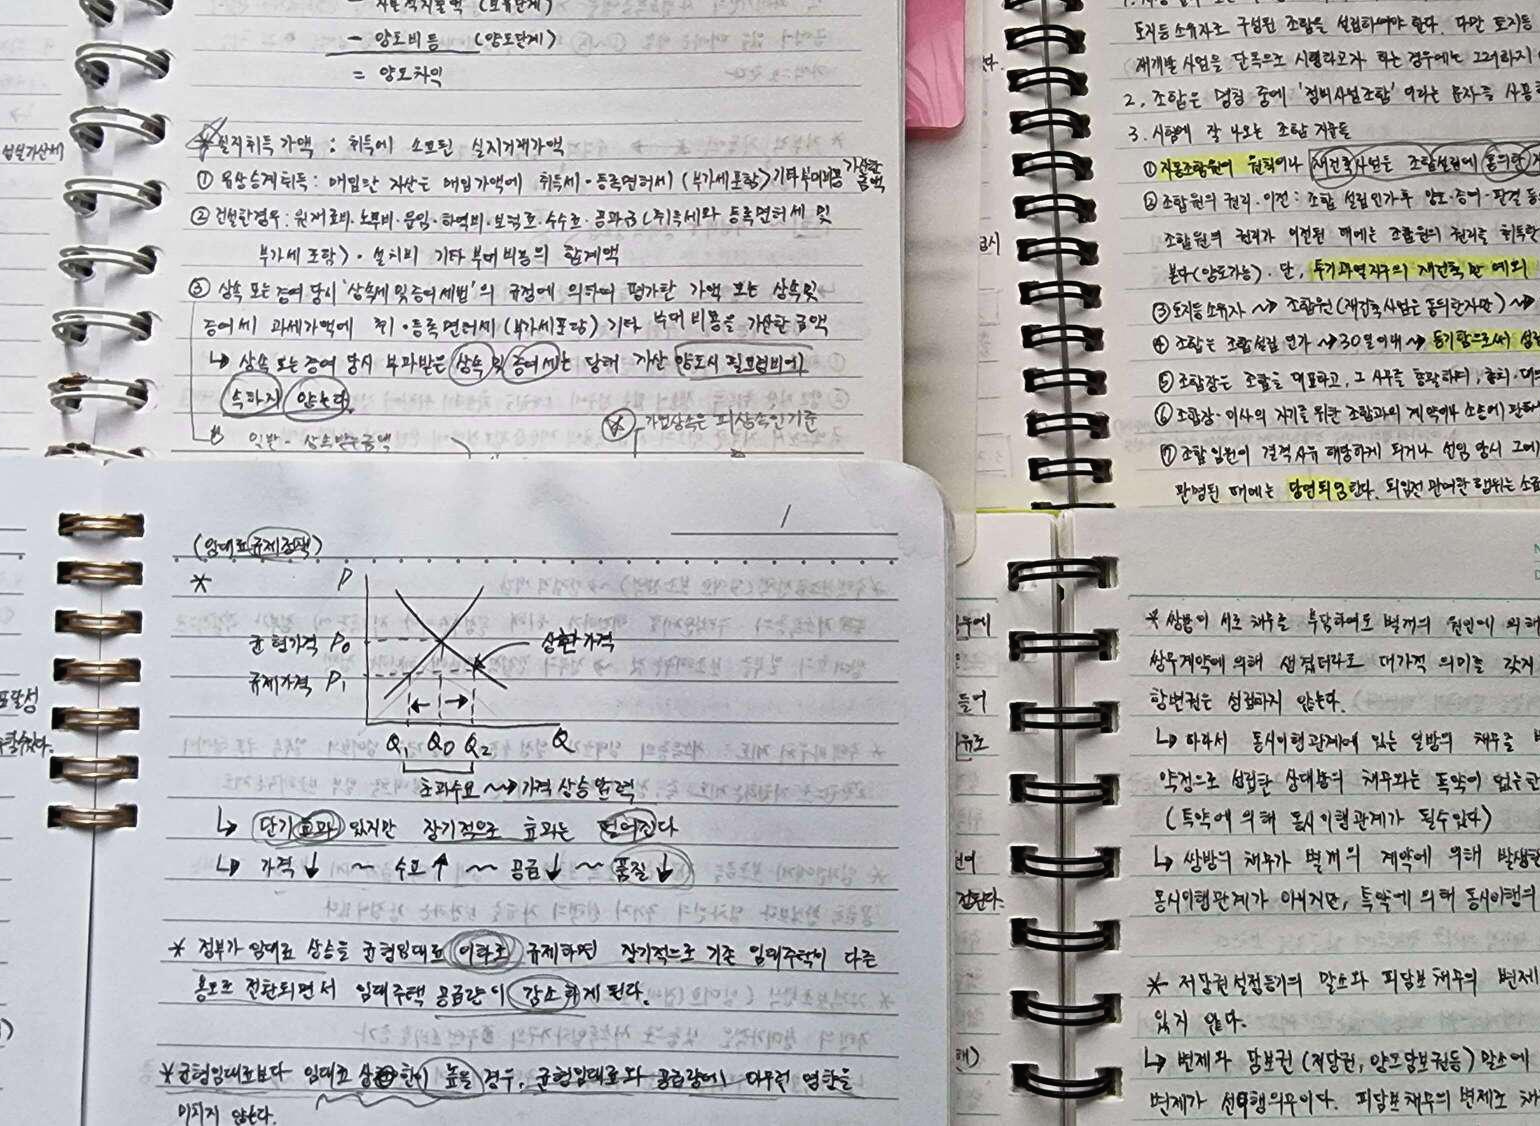 - 양도비등 (양도단계)
= 양도차익
실지취득가액 : 취득에 소요된 실지거래가액
① 유상승계취득 : 매입한 자산은 매입가액에 취득세·등록면허세(부가세포함) 기타부대비용 가산한 금액
② 건설한경우 : 원재료비·노무비·운임·하역비·보험료·수수료·공과금(취득세와 등록면허세 및
부가세 포함)·설치비 기타부대비용의 합계액
③ 상속 또는 증여 당시 '상속세 및 증여세법'의 규정에 의하여 평가한 가액 또는 상속및
증여세 과세가액에 취·등록면허세(부가세포함) 기타 부대비용을 가산한 금액
↳ 상속 또는 증여 당시 부과받은 상속 및 증여세는 당해 자산 양도시 필요경비에
속하지 않는다.
가업상속은 피상속인기준
토지등소유자로 구성된 조합을 설립하여야 한다. 다만 토지등
재개발사업을 단독으로 시행하고자 하는 경우에는 그러하지
2. 조합은 명칭 중에 '정비사업조합'이라는 문자를 사용
3. 시험에 잘 나오는 조합 지문들
① 강제조합원이 원칙이나 재건축사업은 조합설립에 동의한
② 조합원의 권리·이전 : 조합 설립인가후 양도·증여·판결 등
조합원의 권리가 이전된 때에는 조합원의 권리를 취득한
본다(양도가능). 단, 투기과열지구의 재건축만 예외
③ 토지등소유자 ~> 조합원(재건축사업은 동의한자만) ~>
④ 조합은 조합설립 인가 ~> 30일이내 ~> 등기함으로써 성립
⑤ 조합장은 조합을 대표하고, 그 사무를 총괄하며, 총회·대의
⑥ 조합장·이사의 자기를 위한 조합과의 계약이나 소송에 관하여
⑦ 조합임원이 결격사유 해당하게 되거나 선임 당시 그에
판명된 때에는 당연퇴임한다. 퇴임전 관여한 행위는 효력
(임대료 규제정책)
* P
균형가격 P0 상한가격
규제가격 P1
Q1 Q0 Q2 Q
초과수요 ~> 가격상승압력
↳ 단기효과 있지만 장기적으로 효과는 떨어진다
↳ 가격↓ ~ 수요↑ ~ 공급↓ ~ 품질↓
* 정부가 임대료 상승을 균형임대료 이하로 규제하면 장기적으로 기존 임대주택이 다른
용도로 전환되면서 임대주택 공급량이 감소하게 된다.
* 균형임대료보다 임대료 상한이 높을 경우, 균형임대료와 공급량에 아무런 영향을
미치지 않는다.
* 쌍방이 서로 채무를 부담하여도 별개의 원인에 의해
쌍무계약에 의해 생겼더라도 대가적 의미를 갖지
항변권은 성립하지 않는다.
↳ 따라서 동시이행관계에 있는 일방의 채무를
약정으로 성립한 상대방의 채무와는 특약이 없는한
(특약에 의해 동시이행관계가 될수있다)
↳ 쌍방의 채무가 별개의 계약에 의해 발생한
동시이행관계가 아니지만, 특약에 의해 동시이행의
* 저당권설정등기의 말소와 피담보채무의 변제
있지 않다.
↳ 변제와 담보권(저당권, 양도담보권등) 말소에
변제가 선이행의무이다. 피담보채무의 변제로